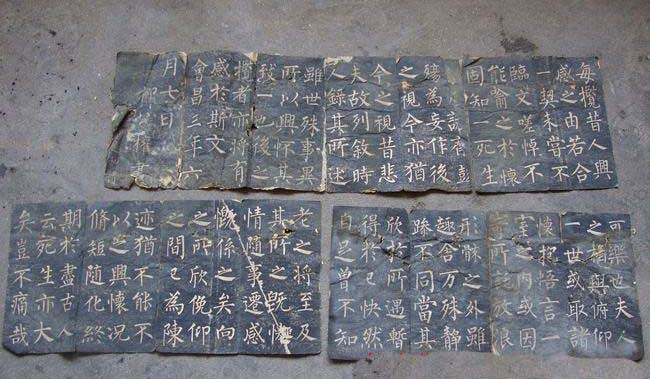 每攬昔人興
感之由若合
一契未嘗不
臨文嗟悼不
能喻之於懷
固知一死生
誕齊彭
殤為妄作後
之視今亦猶
今之視昔悲
夫故列敘時
人錄其所述
雖世殊事異
所以興懷其
致一也後之
攬者亦將有
感於斯文
會昌三年六
月七日
柳公權書
可樂也夫人
之相與俯仰
一世或取諸
懷抱悟言一
室之內或因
寄所託放浪
形骸之外雖
趣舍万殊靜
躁不同當其
欣於所遇暫
得於己快然
自足曾不知
老之將至及
其所之既惓
情隨事遷感
慨係之矣向
之所欣俛仰
之間已為陳
迹猶不能不
以之興懷況
脩短隨化終
期於盡古人
云死生亦大
矣豈不痛哉